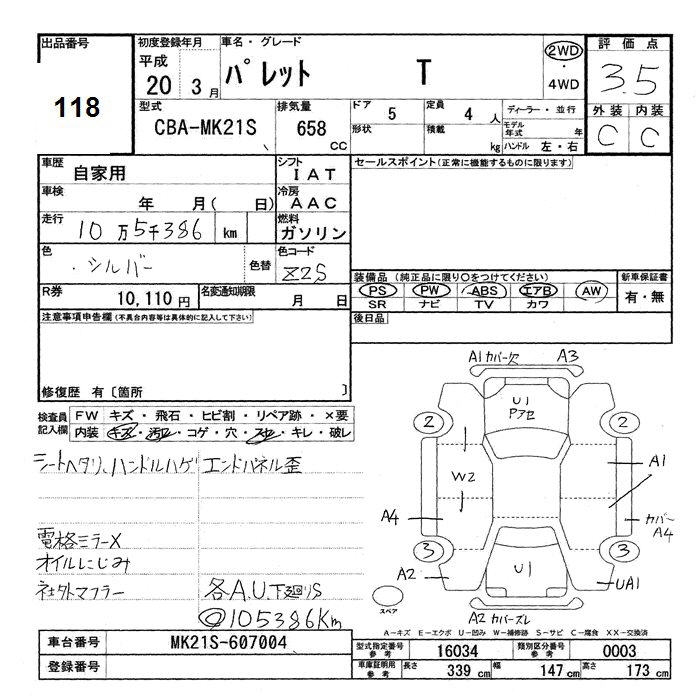 出品番号 118
初度登録年月 平成 20 3月
車名・グレード パレット T
2WD ・ 4WD
評価点 3.5
型式 CBA-MK21S
排気量 658 CC
ドア 5
定員 4 人
形状
積載 kg
ディーラー・並行
モデル年式 年
ハンドル 左・右
外装 内装
C C
車歴 自家用
シフト IAT
車検 年 月( 日)
冷房 AAC
走行 10万5千386 km
燃料 ガソリン
色 シルバー 色替
色コード Z2S
R券 10,110円
名変通知期限 月 日
セールスポイント(正常に機能するものに限ります)
装備品 (純正品に限り○をつけてください)
PS PW ABS エアB AW
SR ナビ TV カワ
新車保証書
有・無
後日品
注意事項申告欄(不具合内容等は具体的に記入して下さい)
修復歴 有〔箇所 〕
検査員記入欄
FW キズ・飛石・ヒビ割・リペア跡・×要
内装 キズ・汚レ・コゲ・穴・スレ・キレ・破レ
シートヘタリ、ハンドルハゲ エンドパネル歪
電格ミラーX
オイルにじみ
社外マフラー 各A.U.下廻りS
@105386Km
A1 カバー欠 A3
U1
Pアセ
2 2
W2 A1
A4 カバーA4
3 3
A2 U1 UA1
スペア
A2 カバーズレ
A-キズ E-エクボ U-凹み W-補修跡 S-サビ C-腐食 XX-交換済
車台番号 MK21S-607004
登録番号
型式指定番号 参考 16034
類別区分番号 参考 0003
車庫証明用 参考 長さ 339 cm 幅 147 cm 高さ 173 cm